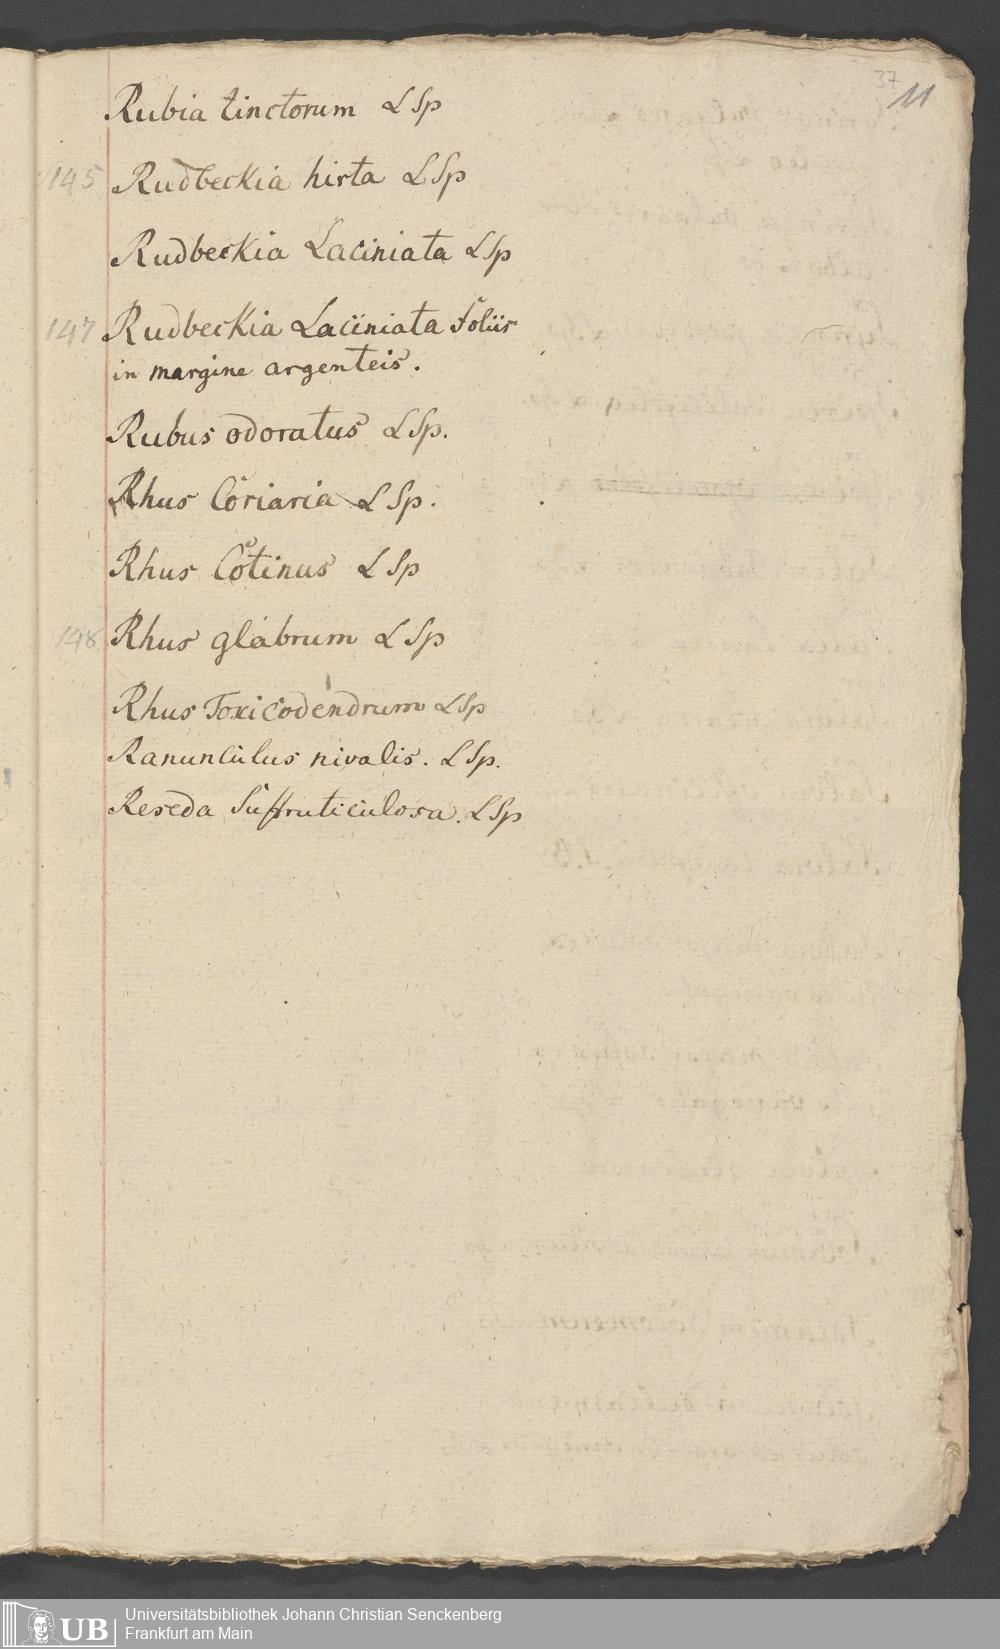 37
11
Rubia tinctorum L Sp
145 Rudbeckia hirta L Sp
Rudbeckia Laciniata L Sp
147 Rudbeckia Laciniata Foliis
in margine argenteis.
Rubus odoratus L Sp.
Rhus Coriaria L Sp.
Rhus Cotinus L Sp
148 Rhus glabrum L Sp
Rhus Toxicodendrum L Sp
Ranunculus nivalis. L Sp.
Reseda Suffruticulosa. L Sp
UB
Universitätsbibliothek Johann Christian Senckenberg
Frankfurt am Main